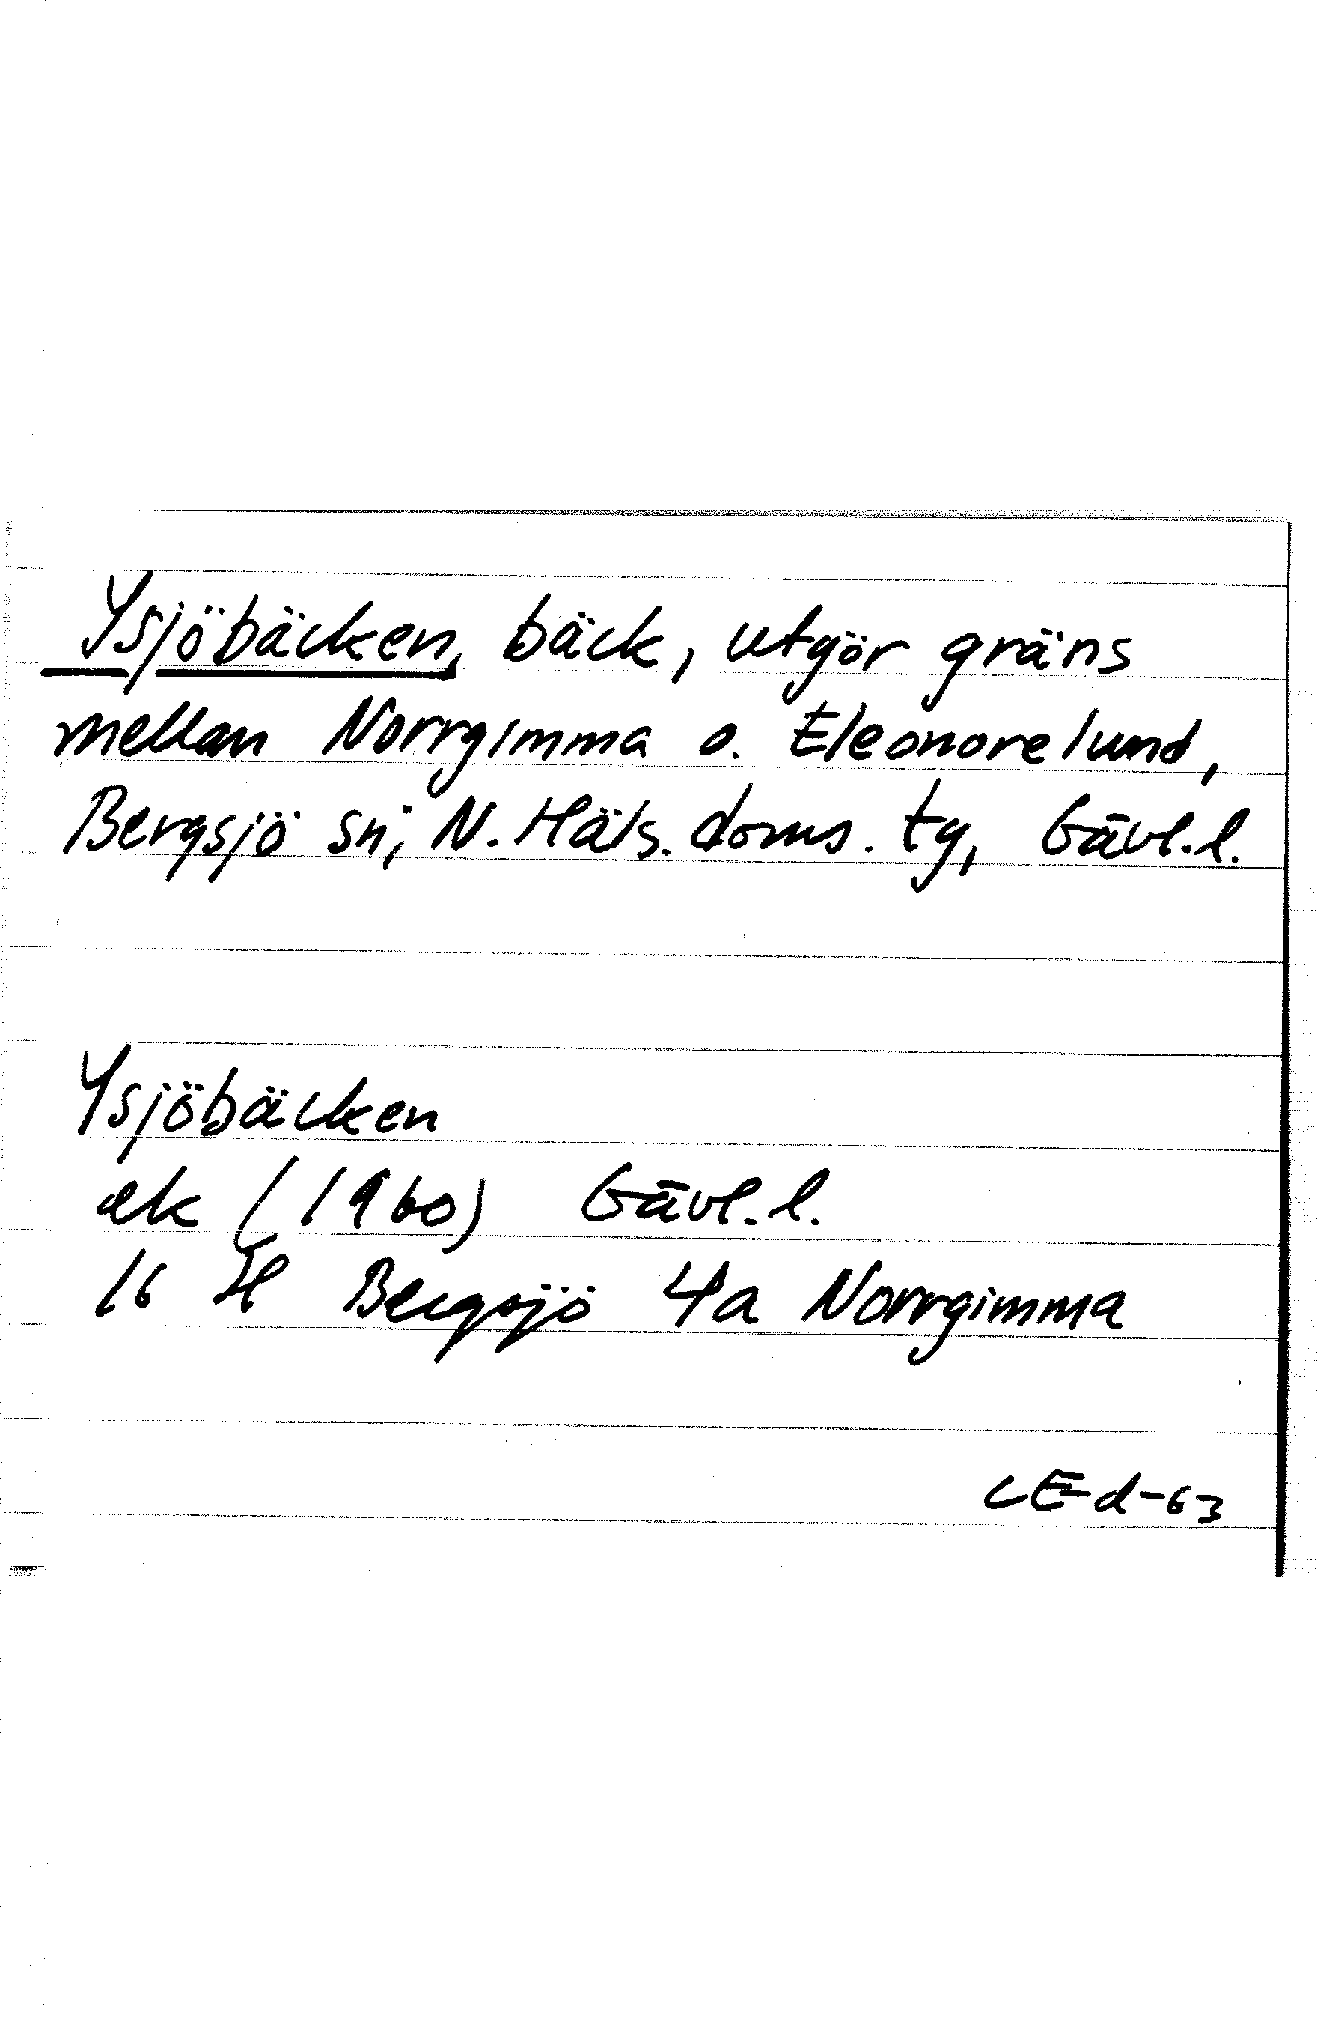 Ysjöbäcken, bäck, utgör gräns
mellan Norrgimma o. Eleonorelund,
Bergsjö sn, N. Häls. doms. tg, Gävl.l.
Ysjöbäcken
ek (1960) Gävl.l.
16 H Bergsjö 4a Norrgimma
CEd-63